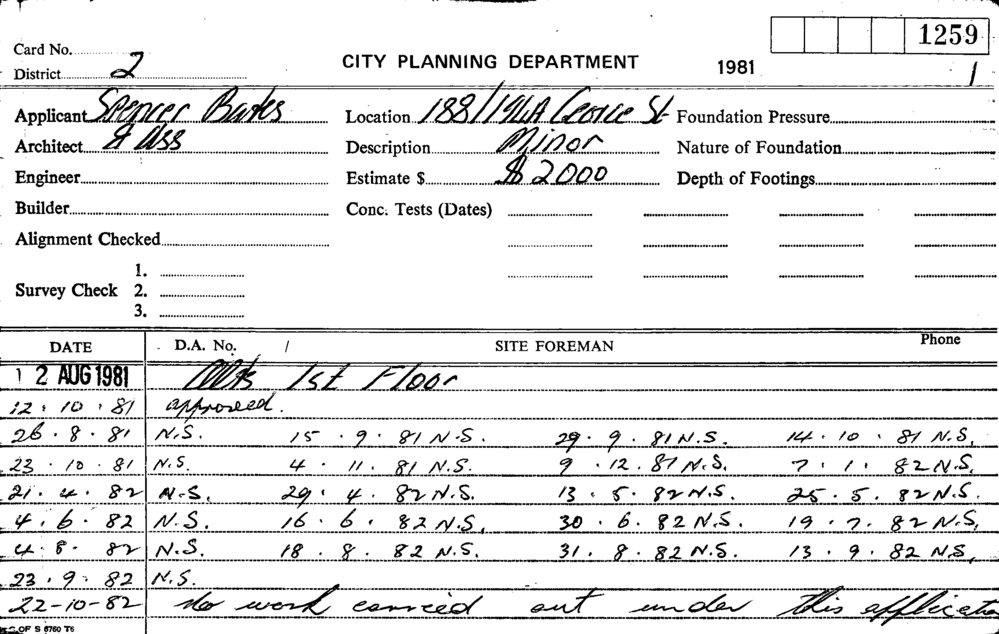 1259
Card No.
District 2 CITY PLANNING DEPARTMENT 1981 1
Applicant Spencer Bates Location 188/194A George St Foundation Pressure
Architect & Ass Description Minor Nature of Foundation
Engineer Estimate $ $ 2000 Depth of Footings
Builder Conc. Tests (Dates)
Alignment Checked
1.
Survey Check 2.
3.
DATE D.A. No. / SITE FOREMAN Phone
12 AUG 1981 Alts 1st Floor
12.10.81 approved.
26.8.81 N.S. 15.9.81 N.S. 29.9.81 N.S. 14.10.81 N.S.
23.10.81 N.S. 4.11.81 N.S. 9.12.81 N.S. 7.1.82 N.S.
21.4.82 N.S. 29.4.82 N.S. 13.5.82 N.S. 25.5.82 N.S.
4.6.82 N.S. 16.6.82 N.S. 30.6.82 N.S. 19.7.82 N.S.
4.8.82 N.S. 18.8.82 N.S. 31.8.82 N.S. 13.9.82 N.S.
23.9.82 N.S.
22-10-82 No work carried out under this application
OF S 6760 T6